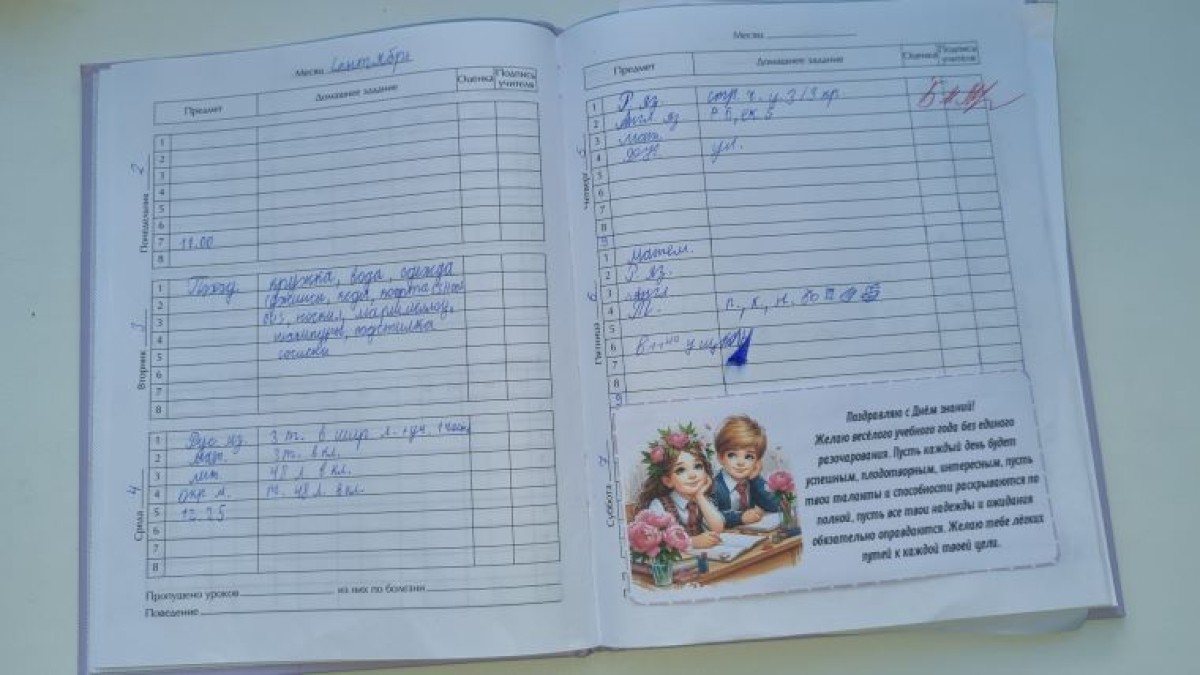 Месяц Сентябрь
Предмет Домашнее задание Оценка Подпись учителя
Понедельник 2
1
2
3
4
5
6
7 11.00
8
Вторник 3
1 Поход. кружка, вода, одежда
2
3 носки, маршмеллоу,
4 подстилка
5 сосиски
6
7
8
Среда 4
1 Рус яз. 3 т. в шир. л. + уч. 1 часть
2 Мат. 3 т. в кл.
3 лит. 48 л. в кл.
4 Окр м. т. 48 л. в кл.
5 12.25
6
7
8
Пропущено уроков из них по болезни
Поведение
Месяц
Предмет Домашнее задание Оценка Подпись учителя
Четверг 5
1 Р яз. стр. 4. у. 3
2 Англ. яз
3 Мат.
4
5
6
7
8
Пятница 6
1 матем.
2 Р яз.
3 Англ
4
5
6
7
8
9
Суббота 7
Поздравляю с Днём знаний!
Желаю весёлого учебного года без единого
разочарования. Пусть каждый день будет
успешным, плодотворным, интересным, пусть
твои таланты и способности раскрываются по
полной, пусть все твои надежды и ожидания
обязательно оправдаются. Желаю тебе лёгких
путей к каждой твоей цели.